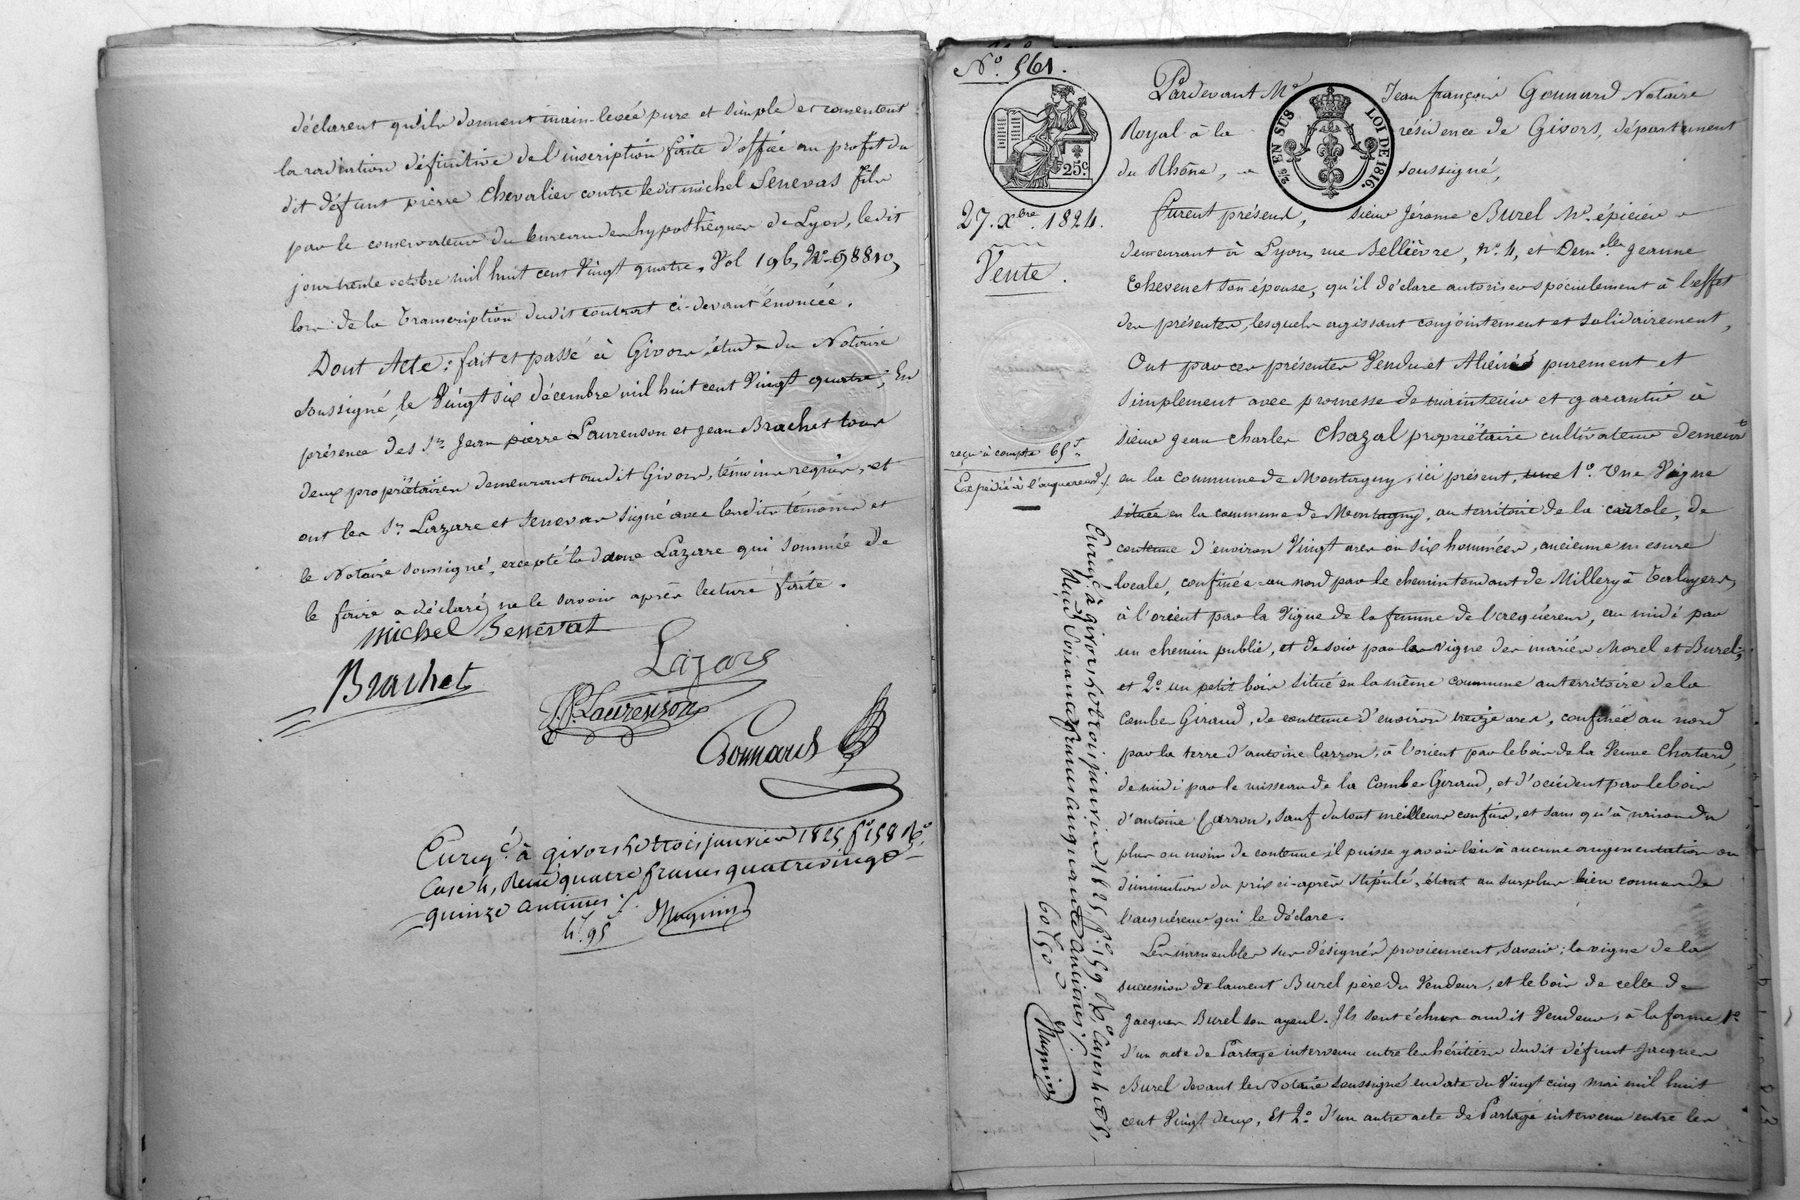 déclarent qu'ils donnent main-levée pure et simple et consentent
la radiation définitive de l'inscription faite d'office au profit du
dit défunt pierre Chevalier contre ledit michel Senevas fils
par le conservateur du bureau des hypothèques de Lyon, ledit
jour trente octobre mil huit cent Vingt quatre, Vol 196, N.o 98810,
lors de la transcription dudit contrat ci-devant énoncée.
Dont Acte : fait et passé à Givors, étude du Notaire
soussigné, le Vingt six décembre mil huit cent Vingt quatre, En
présence des Srs Jean pierre Laurenson et Jean Brachet tous
deux propriétaires demeurant audit Givors, témoins requis, et
ont les Srs Lazare et Senevas signé avec lesdits témoins et
le Notaire soussigné, excepté la dame Lazare qui sommée de
le faire a déclaré ne le savoir après lecture faite.
michel Senevat
Lazare
Brachet
J.P. Laurenson
Gonnard
Enregé à givors le trois janvier 1825 fo 158 Ro
Case 4, Reçu quatre francs quatrevingt
quinze centimes
4f. 95
Mugnier
No. 561.
25c
2/5 EN SUS
LOI DE 1816.
27. Xbre 1824.
Vente.
reçu à compte 65f
Expédié à l'acquereur
Pardevant Me Jean françois Gonnard Notaire
Royal à la résidence de Givors, département
du Rhône, soussigné,
furent présens, sieur Jérome Burel Md. épicier
demeurant à Lyon, rue Bellièvre, No. 4, et Demlle Jeanne
Thevenet son épouse, qu'il déclare autoriser spécialement à l'effet
des présentes, lesquels agissant conjointement et solidairement,
Ont par ces présentes Vendu et Aliéné purement et
simplement avec promesse de maintenir et garantir à
sieur jean charles Chazal propriétaire cultivateur demeurt
en la commune de Montagny, ici présent, une 1o. Une Vigne
située en la commune de Montagny, au territoire de la de
contenue d'environ Vingt ares ou six hommées, ancienne mesure
locale, confinée au nord par le chemin tendant de Millery à Taluyers,
à l'orient par la Vigne de la femme de l'acquéreur, au midi par
un chemin public, et de soir par la vigne des mariés Morel et Burel;
et 2o. un petit bois situé en la même commune au territoire de la
Combe Giraud, de contenue d'environ treize ares, confinée au nord
par la terre d'antoine Carron, à l'orient par le bois de la Veuve Chortard,
de midi par le ruisseau de la Combe Giraud, et d'occident par le bois
d'antoine Carron, sauf du tout meilleurs confins, et sans qu'à raison du
plus ou moins de contenue il puisse y avoir lieu à aucune augmentation ou
diminution du prix ci-après stipulé, étant au surplus bien connus de
l'acquéreur qui le déclare.
Les immeubles sus désignés proviennent, savoir : la vigne de la
succession de laurent Burel père du Vendeur, et le bois de celle de
Jacques Burel son ayeul. Ils sont échus audit Vendeur, à la forme 1o
d'un acte de Partage intervenu entre les héritiers dudit défunt Jacques
Burel devant le Notaire soussigné en date du Vingt cinq mai mil huit
cent Vingt deux, Et 2o. d'un autre acte de Partage intervenu entre les
Enregé à givors le trois janvier 1825 fo. 159 Ro Cases 4 et 5,
Reçu Soixante francs cinquante centimes
60f 50c
Mugnier